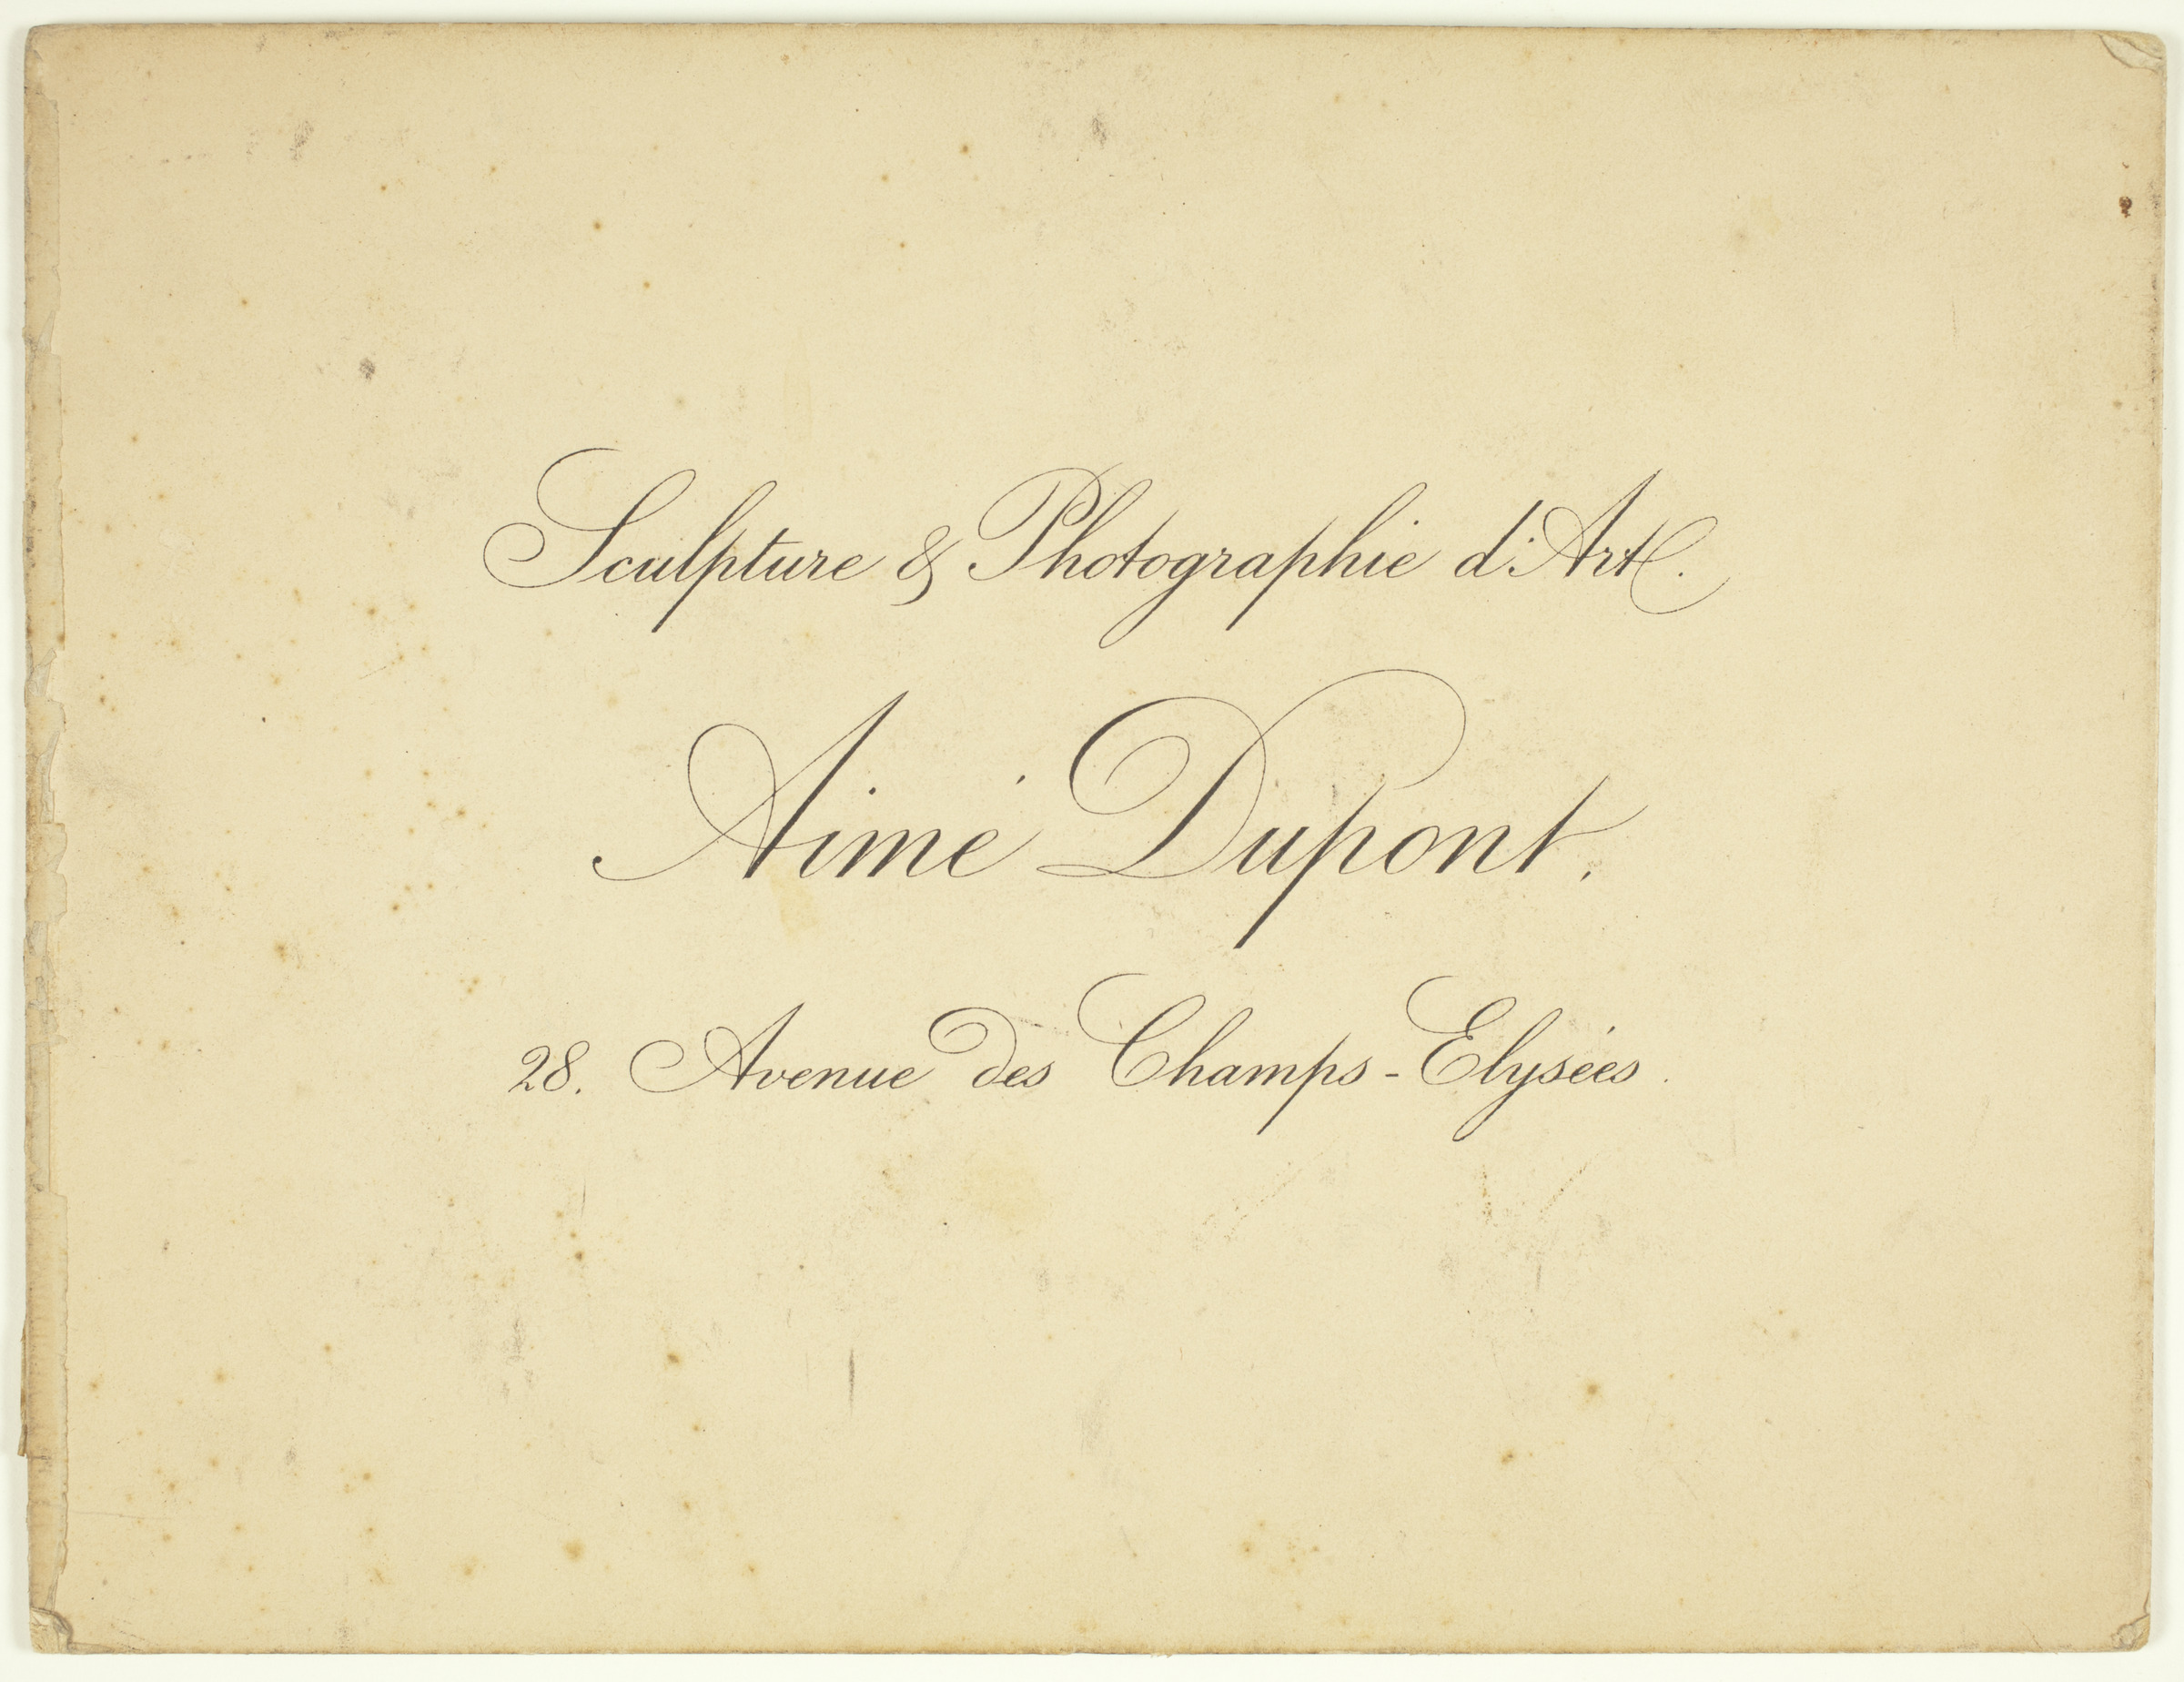 Sculpture & Photographie d'Art.
Aimé Dupont.
28. Avenue des Champs-Elysées.